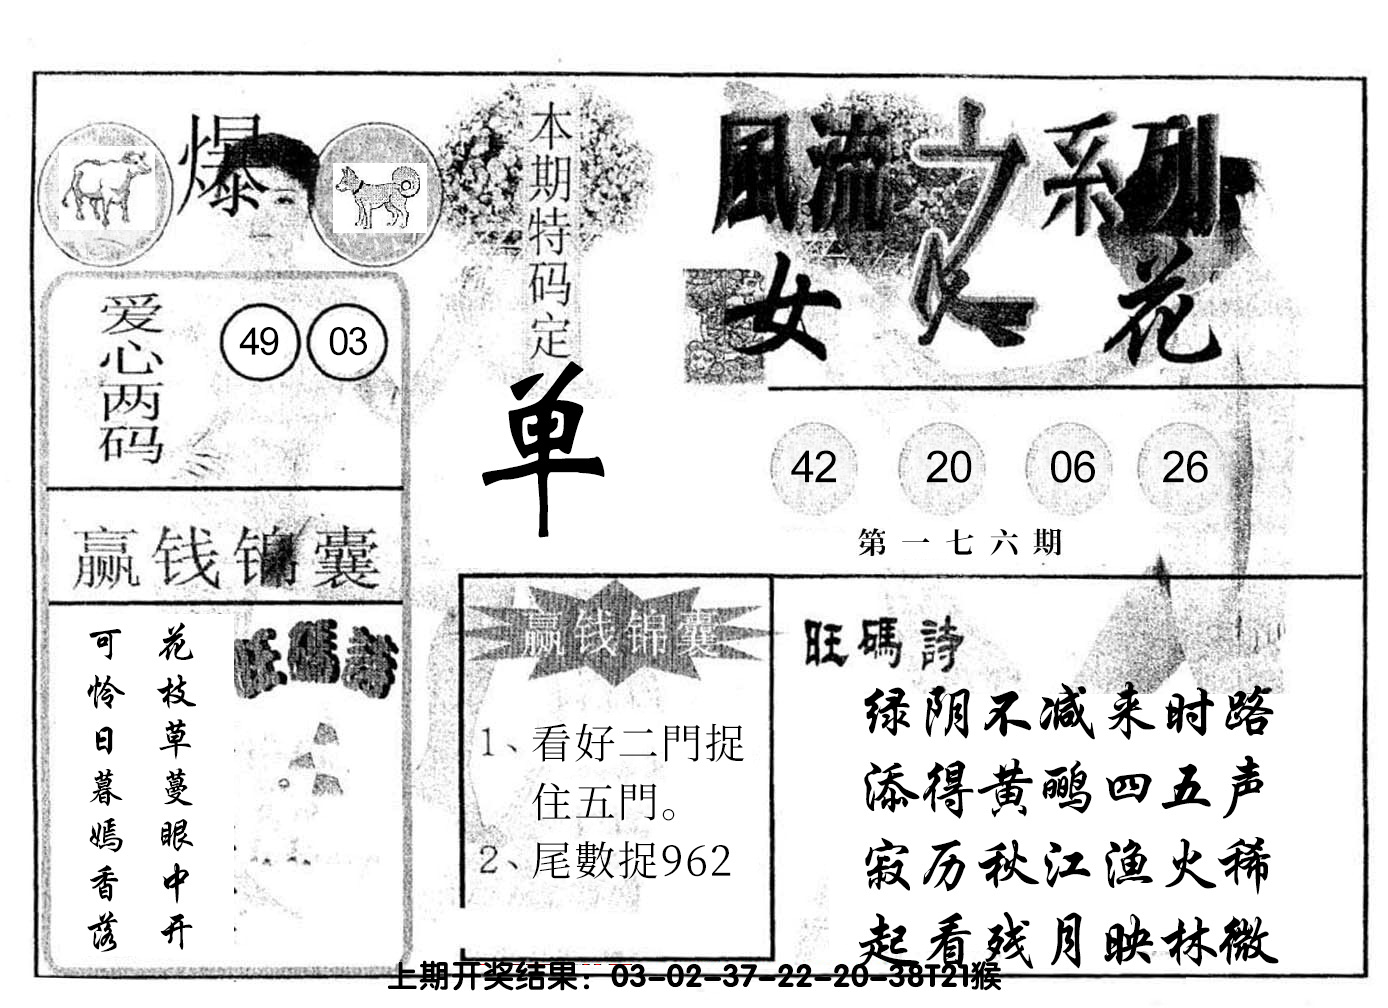 爆
本期特码定
单
風流之系列
女人花
爱心两码
49 03
42 20 06 26
第一七六期
赢钱锦囊
花枝草蔓眼中开
可怜日暮嫣香落
旺碼詩
赢钱锦囊
1、看好二門捉
住五門。
2、尾數捉962
旺碼詩
绿阴不减来时路
添得黄鹂四五声
寂历秋江渔火稀
起看残月映林微
上期开奖结果：03-02-37-22-20-38T21猴